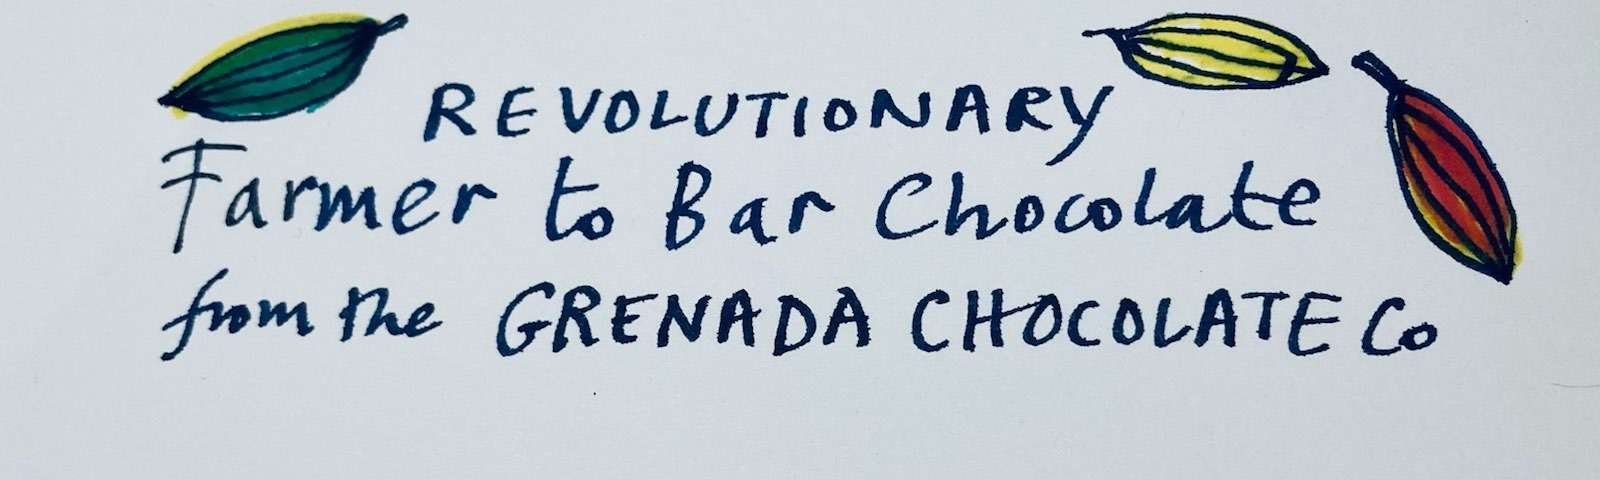 REVOLUTIONARY
Farmer to Bar Chocolate
from the GRENADA CHOCOLATE Co